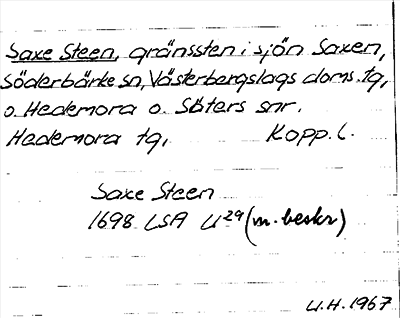 Saxe Steen, gränssten i sjön Saxen,
Söderbärke sn, Västerbergslags doms. tg,
o. Hedemora o. Säters snr.
Hedemora tg, Kopp. l.
Saxe Steen
1698 LSA U29 (m. beskr)
U.H. 1967